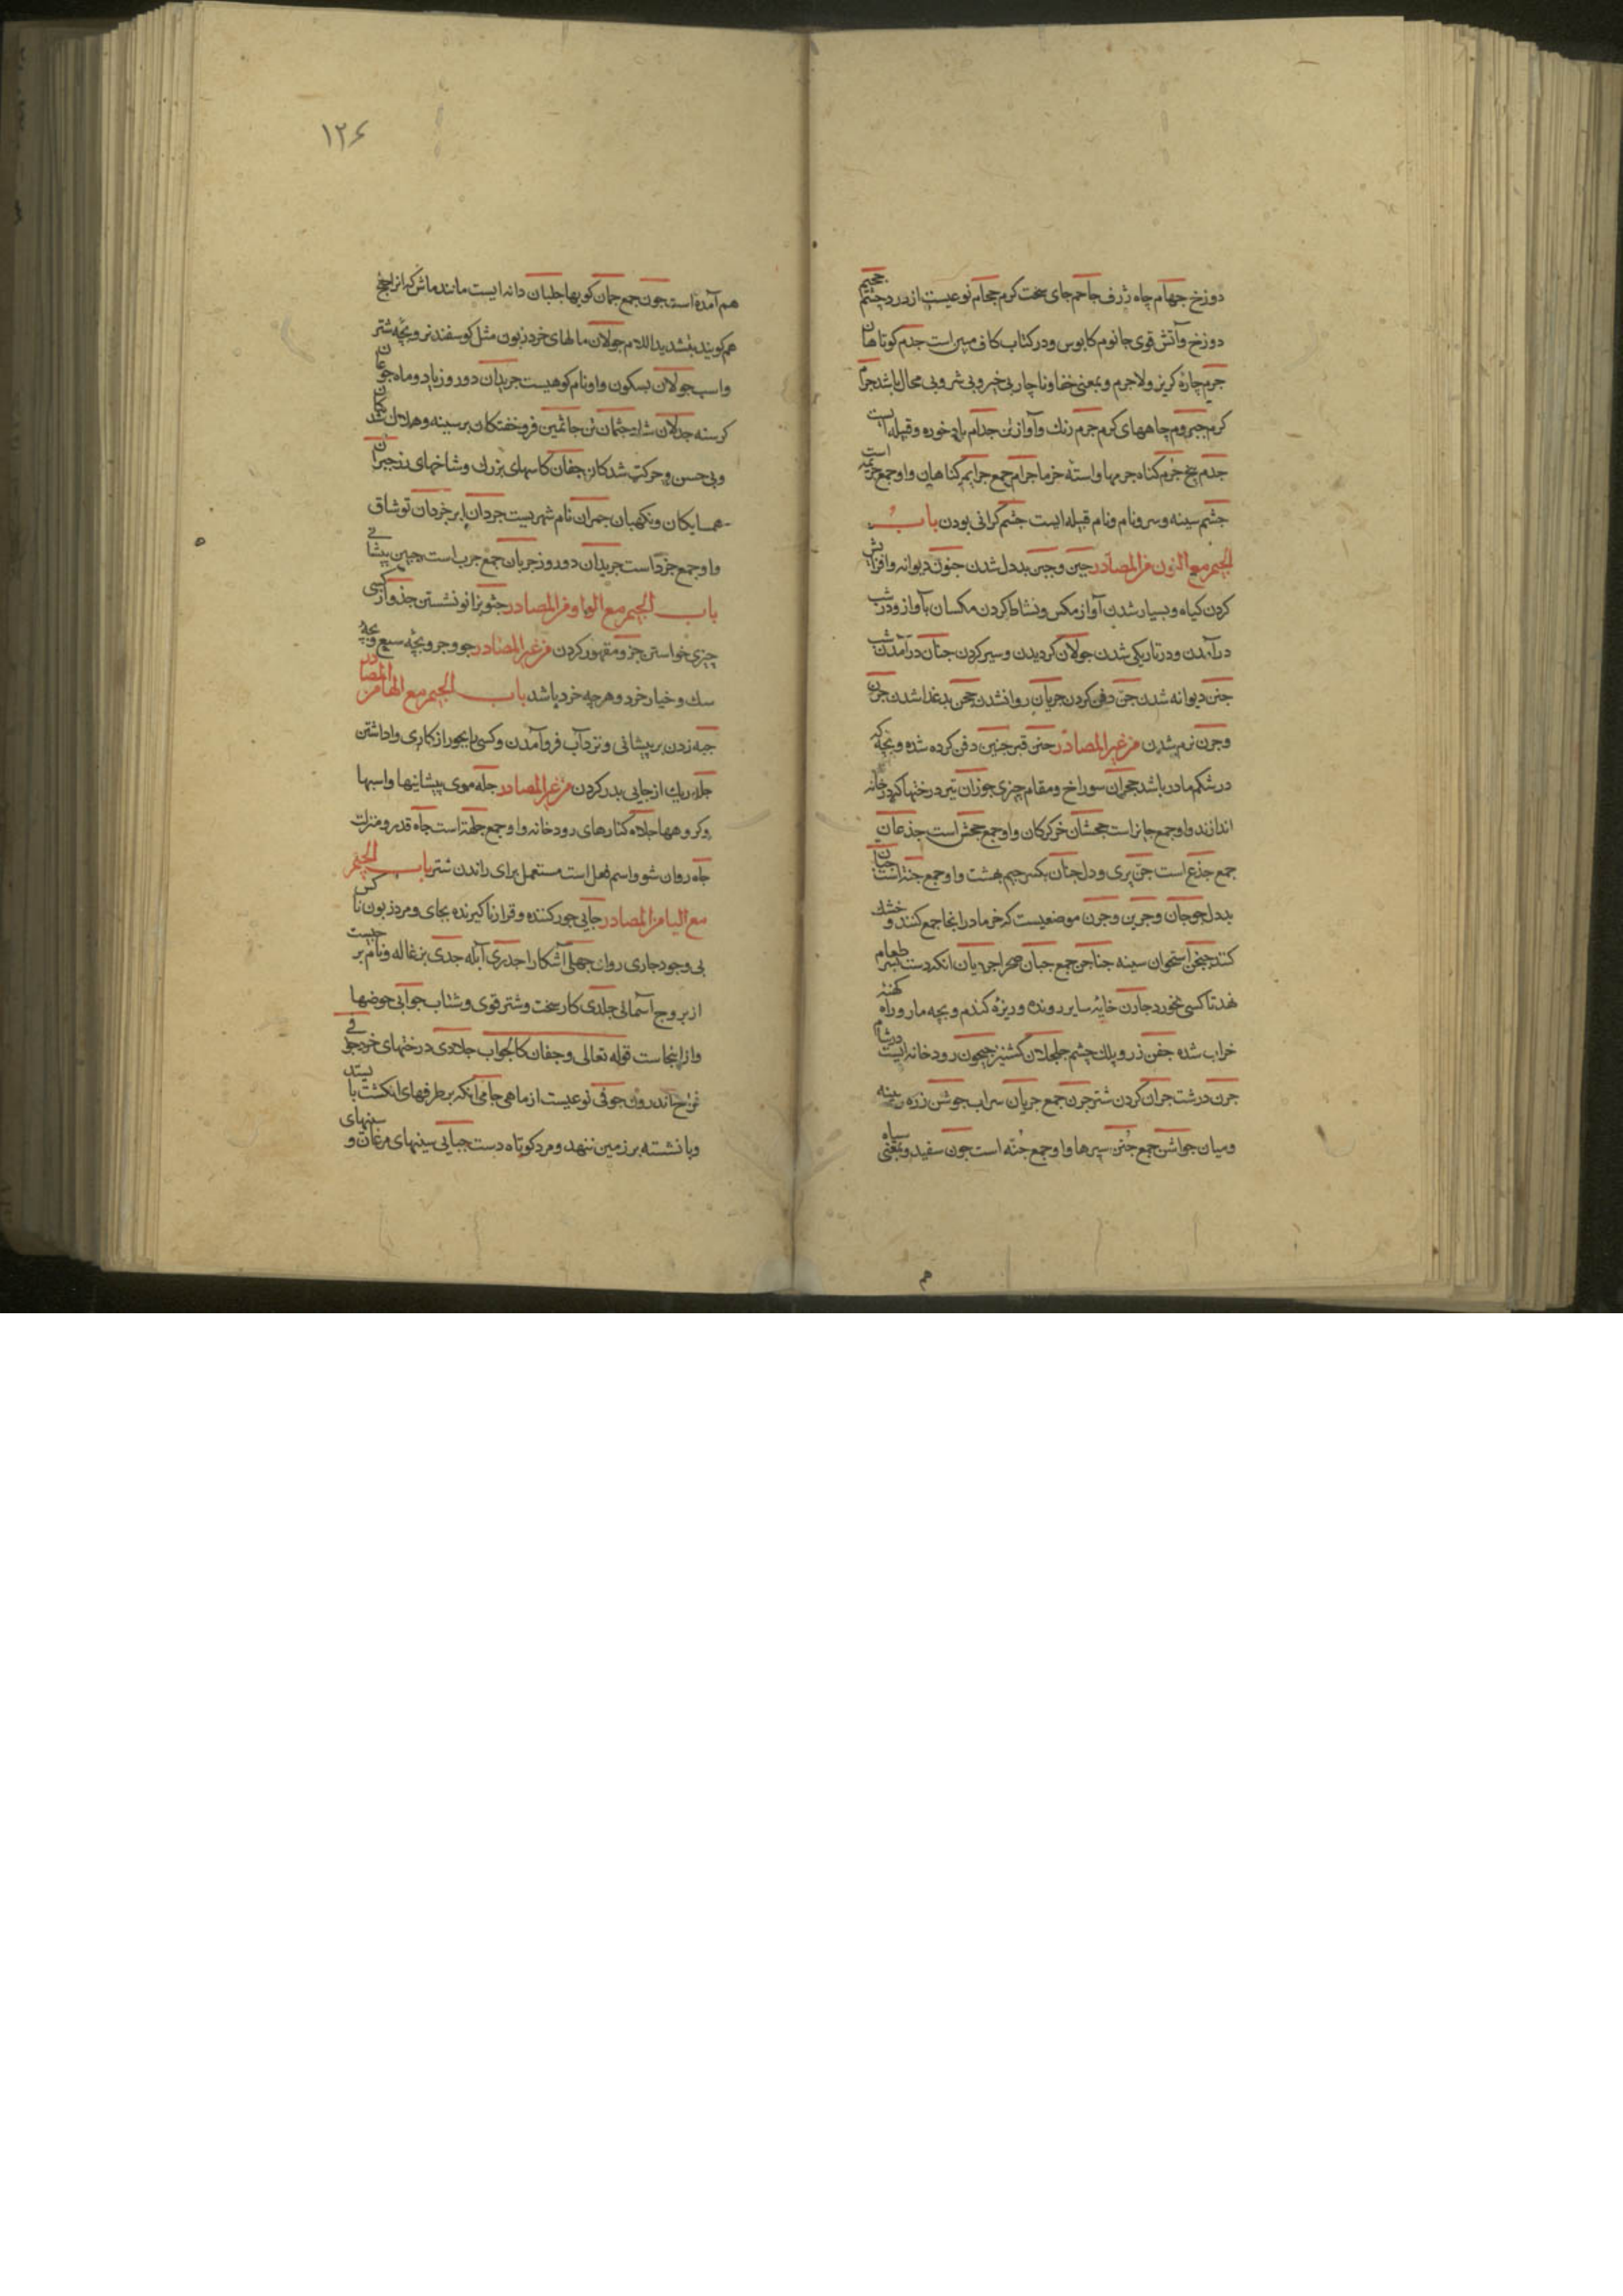 دوزخ جهام چاه ژرف جاحم جای سخت کرم جحام نوعیست از درد چشم جحیم
دوزخ وآتش قوی جاثوم کابوس ودر کتاب کافی مبین است جدم کوتاهان
جرم چاره کریز ولاجرم وبمعنی خفا وناچار بی خیر وبی شر وبی محال باشد جرام
کرم جروم چاههای کرم جرم رنك وآواز تن جدام باد خوره وقبیله است
جذم بیخ جرم کناه جرمها واسته خرما جرام جمع جرایم کناهان واوجمع جریمه است
جشم سینه وسر ونام ونام قبیله ایست جشم کرانی بودن باب
الجیم مع النون من المصادر جبن وجبن بددل شدن جنون دیوانه وافزایش
کردن کیاه وبسیار شدن آواز مکس ونشاط کردن مکسان بآواز ودر شب
درآمدن ودر تاریکی شدن جولان کردیدن وسیر کردن جنان درآمدن شب
جنن دیوانه شدن جن دفن کردن جریان روان شدن جحن بدغذا شدن جرن
وجرن نرم شدن من غیر المصادر جنن قبر جنین دفن کرده شده وبچه که
در شکم مادر باشد جحران سوراخ ومقام چیزی جوزان تیر درختها که در خانه
اندازند واوجمع جایز است جحشان خرکرکان واوجمع جحش است جذعان
جمع جذع است جن پری ودل جنان بکسر جیم بهشت واوجمع جنة است جبان
بددل جوجان وجرین وجرن موضعیست که خرما در انجا جمع کنند وخشك
کنند جنجن استخوان سینه جناجن جمع جبان صحرا جردبان انکه دست بر طعام
نهد تا کسی نخورد جارن خایه سایر رونده وریزه کندم وبچه مار وراه کهنه
خراب شده جفن زر وپلك چشم جلجلان کشنیز جیحون رودخانه ایست در شام
جرن درشت جران کردن شتر جرن جمع جریان سراب جوشن زره وسینه
ومیان جواشن جمع جنن سپرها واوجمع جنه است جون سفید وبمعنی سیاه
۱۲۶
هم آمده است جون جمع جمان کوبها جلبان دانه ایست مانند ماش که انرا
هم کویند بتشدید اللام جولان مالهای خرد زبون مثل کوسفند نر وبچه شتر
واسب جولان بسکون واو نام کوهیست جریدان دو روز یا دو ماه جوعان
کرسنه جدلان شاد جثمان تن جاثمین فروخفتکان بر سینه وهلاك شدکان
وبی حسن وحرکت شدکان جفان کاسهای بزرك وشاخهای رز جیران
همسایکان ونکهبان جمران نام شهریست جردان ایر خردان توشاق
واوجمع جرد است جریدان دو روز جربان جمع جرب است جبین پیشانی
باب الجیم مع الواو من المصادر جثو بزانو نشستن جذو از کسی
چیزی خواستن جزو مقهور کردن من غیر المصادر جو وجرو بچه سبع وبچه
سك وخیار خرد وهرچه خرد باشد باب الجیم مع الها من المصادر
جبه زدن بر پیشانی ونزد آب فروآمدن وکسی را بجور از کاری واداشتن
جله ریك از جایی بدر کردن من غیر المصادر جله موی پیشانیها واسبها
وکروهها جلاه کنارهای رودخانه واوجمع جلهة است جاه قدر ومنزلت
جاه روان شو واسم فعل است مستعمل برای راندن شتر باب الجیم
مع الیا من المصادر جایی جور کننده وقرار ناکیرنده بجای ومرد زبون ناکس
بی وجود جاری روان جهلی آشکارا جدری آبله جدی بزغاله ونام برجیست
از بروج آسمانی جلدی کار سخت وشتر قوی وشتاب جوابی حوضها
وازاینجاست قوله تعالی وجفان کالجواب جلاذی درختهای خرد جوفی
فراخ اندرون جوفی نوعیست از ماهی جامی انکه بر طرفهای انکشت بایستد
وبا نشسته بر زمین ننهد ومرد کوتاه دست جبایی سینهای مرغان وسینهای